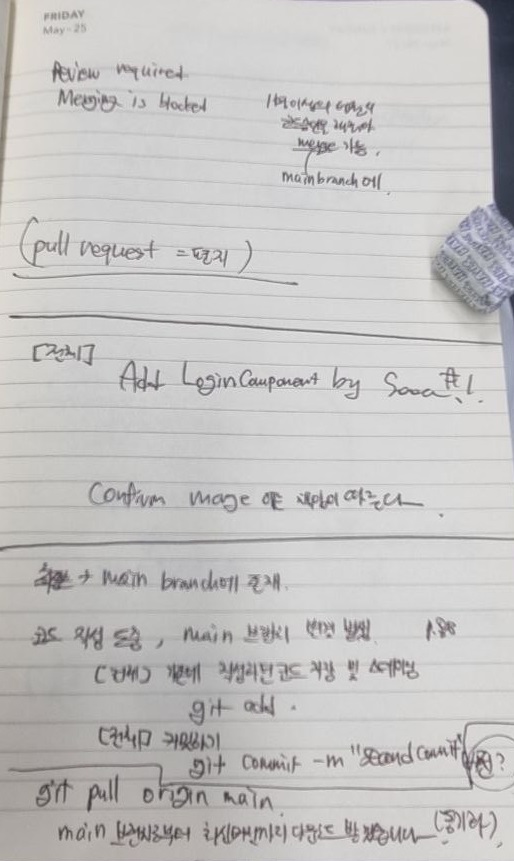 FRIDAY
May-25
Review required
Merging is blocked
1명이상의
merge 가능.
main branch에
(pull request = 편지)
[전체]
Add LoginComponent by
Confirm mage 에 책임이 따른다.
→ main branch에 존재.
코드 작성 도중, main 브랜치 변경 발생
기존에 작성하던 코드 저장 및 스테이징
git add .
커밋하기
git commit -m "second commit"
git pull origin main
main 브랜치로부터 다운로드 받겠습니다 (동기화)